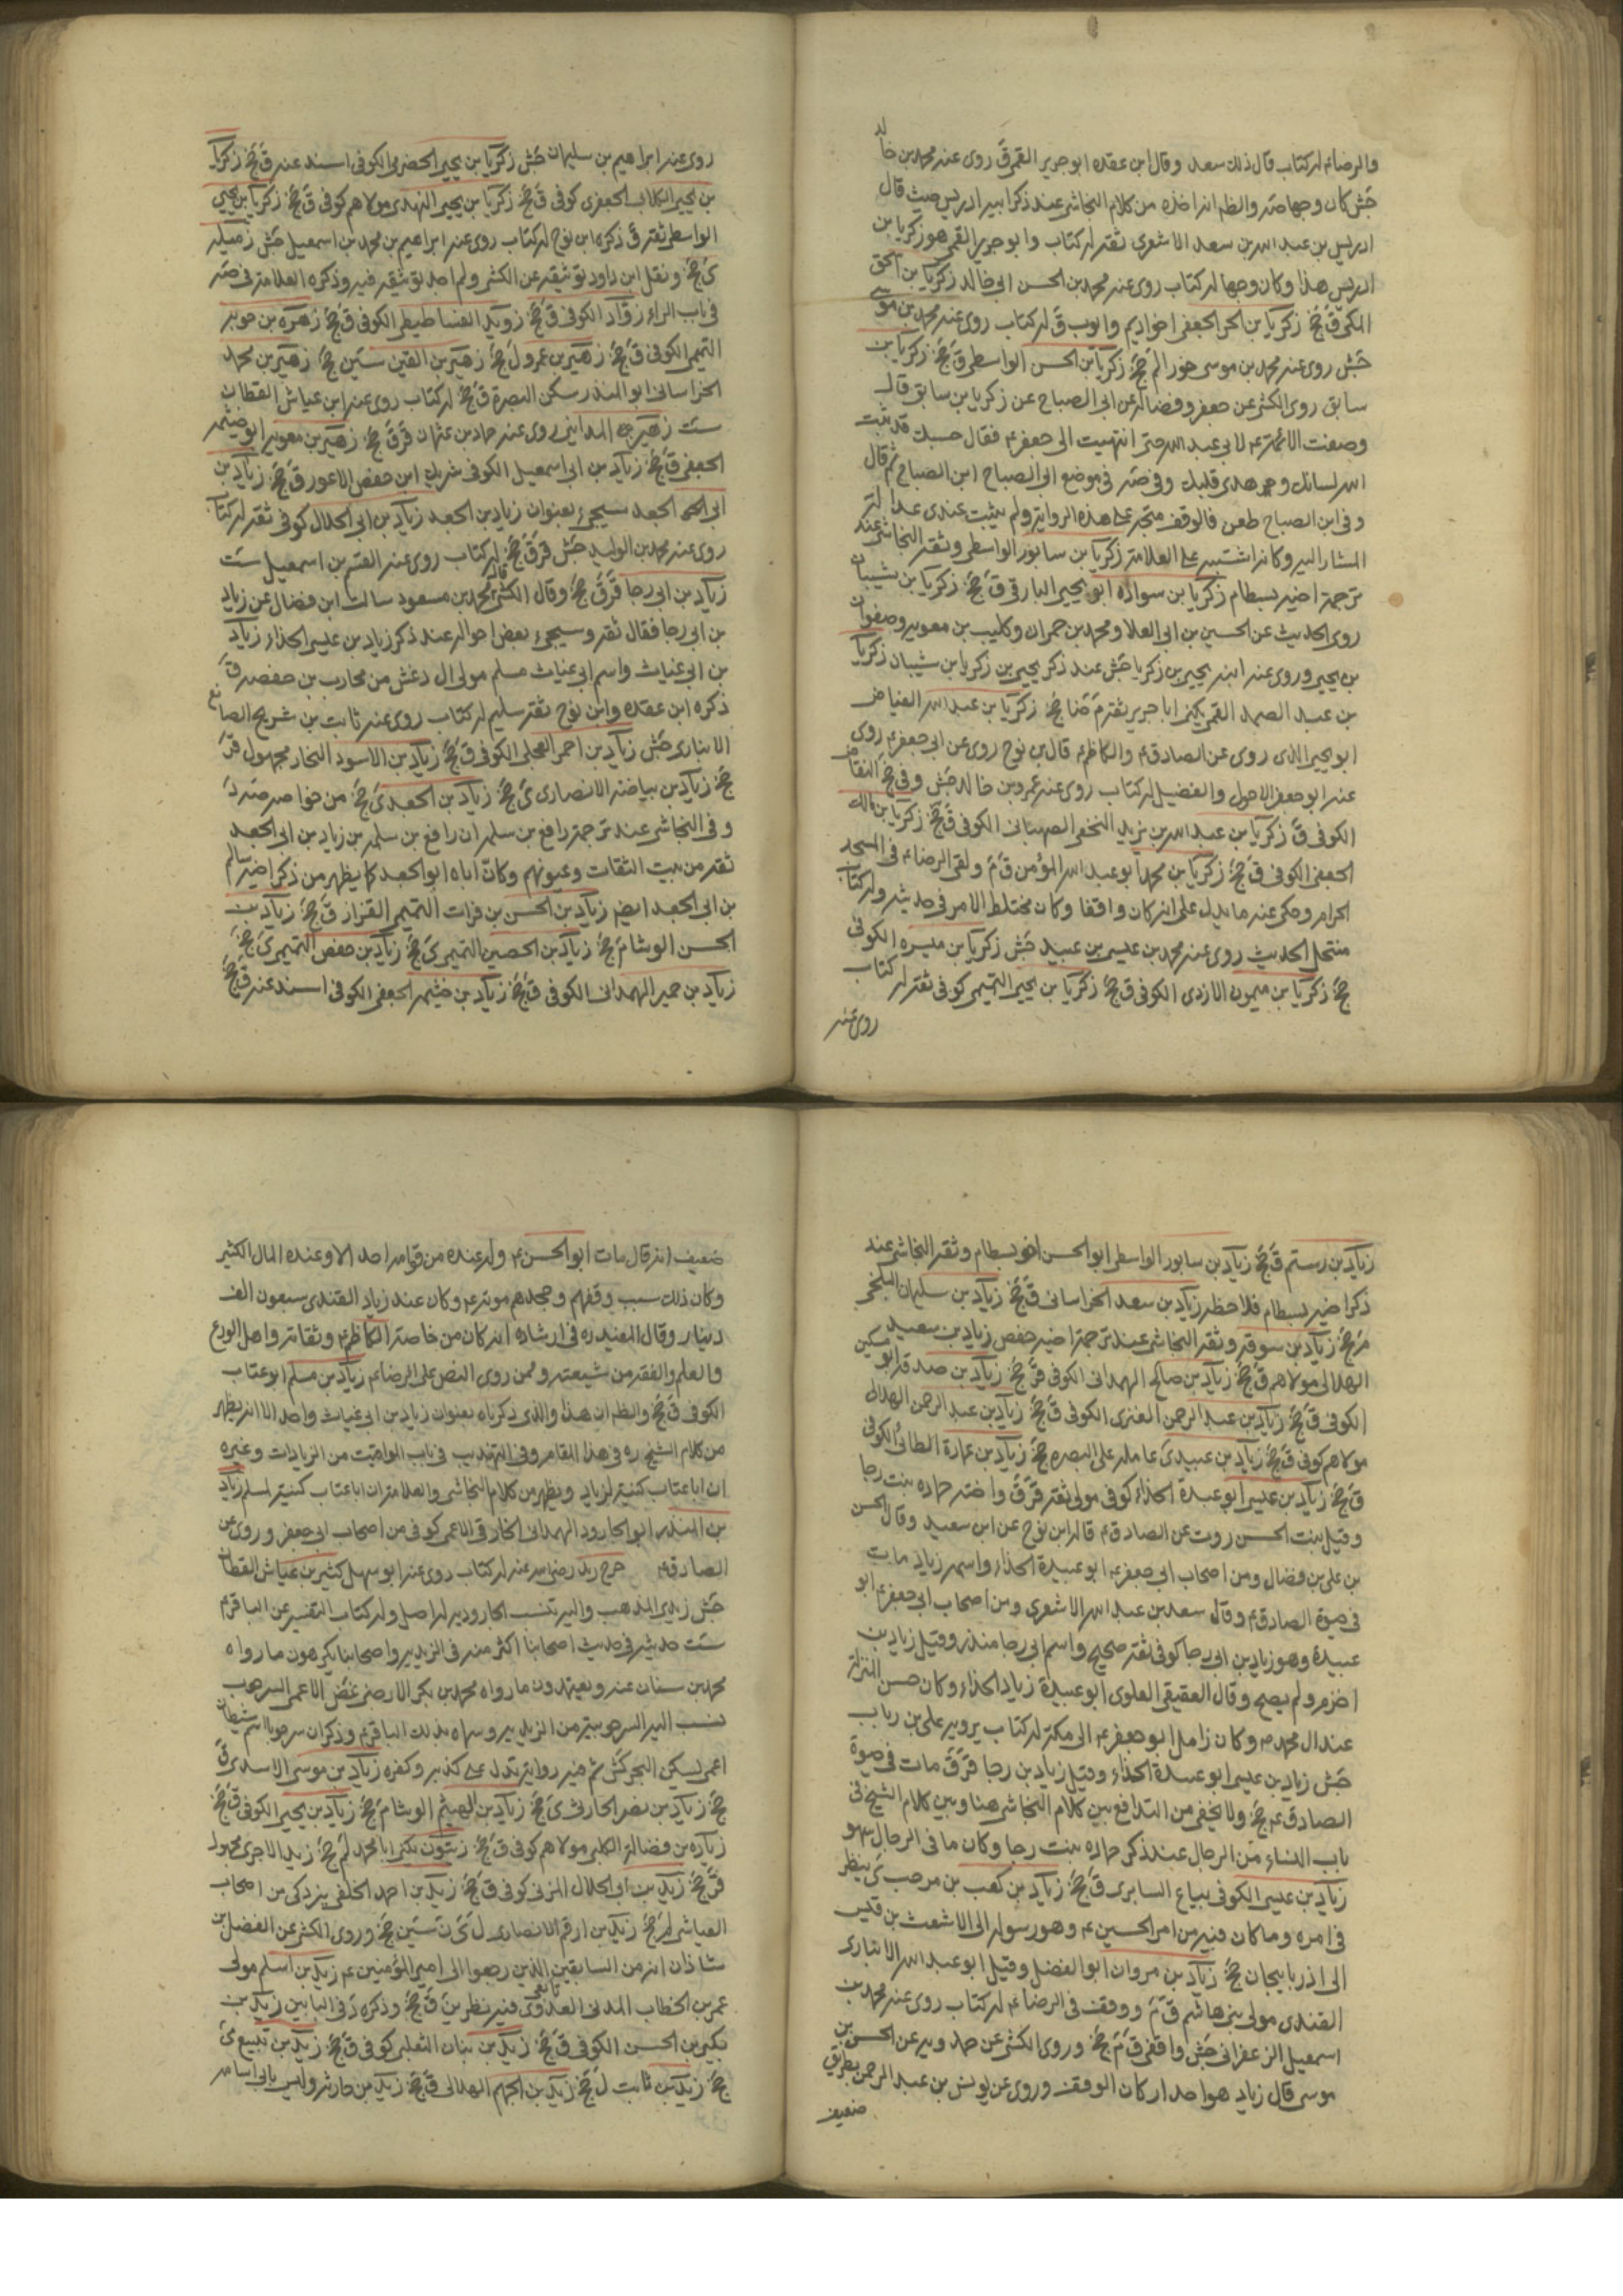 والرضاء له كتاب قال ذلك سعد وقال ابن عقده ابو جرير القمى ق روى عنه محمد بن خالد
جش كان وجها صه والظ انه اخذه من كلام النجاشى عند ذكر ابيه ادريس حيث قال
ادريس بن عبد الله بن سعد الاشعرى ثقة له كتاب وابو جرير القمى هو زكريا بن
ادريس هذا وكان وجها له كتاب روى عنه محمد بن الحسن ابى خالد زكريا بن اسحق
المكى ق جخ زكريا بن الحر الجعفى اخو اديم وايوب ق له كتاب روى عنه محمد بن موسى
جش روى عنه محمد بن موسى خوراء لم جخ زكريا بن الحسن الواسطى ق جخ زكريا بن
سابق روى الكشى عن جعفر وفضاله عن ابى الصباح عن زكريا بن سابق قال
وصفت الائمة ع لابى عبد الله حتى انتهيت الى ابى جعفر ع فقال حسبك قد ثبت
الله لسانك وهدى قلبك وفى صه فى موضع ابى الصباح ابن الصباح ثم قال
وفى ابن الصباح طعن فالوقف متجه على هذه الرواية ولم يثبت عندى عدالة
المشار اليه وكانه اشتبه على العلامة زكريا بن سابور الواسطى وثقه النجاشى عند
ترجمة اخيه بسطام زكريا بن سوادة ابو يحيى البارقى ق جخ زكريا بن شيبان
روى الحديث عن الحسين بن ابى العلا ومحمد بن حمران وكليب بن معوية وصفوان
بن يحيى وروى عنه ابنه يحيى بن زكريا جش عند ذكر يحيى بن زكريا بن شيبان زكريا
بن عبد الصمد القمى يكنى ابا جرير ثقة م ضا جخ زكريا بن عبد الله الفياض
ابو يحيى الذى روى عن الصادق ع والكاظم ع قال بن نوح روى عن ابى جعفر ع روى
عنه ابو جعفر الاحول والفضيل له كتاب روى عنه عمرو بن خالد جش وفى جخ النقاض
الكوفى ق زكريا بن عبد الله بن يزيد النخعى الصهبانى الكوفى ق جخ زكريا بن مالك
الجعفى الكوفى ق جخ زكريا بن محمد ابو عبد الله المؤمن ق م ولقى الرضاء فى المسجد
الحرام وحكى عنه ما يدل على انه كان واقفا وكان مختلط الامر فى حديثه وله كتاب
منتحل الحديث روى عنه محمد بن عيسى بن عبيد جش زكريا بن ميسره الكوفى
جخ زكريا بن ميمون الازدى الكوفى ق جخ زكريا بن يحيى التميمى كوفى ثقة له كتاب
روى عنه
روى عنه ابراهيم بن سليمان جش زكريا بن يحيى الحضرمى الكوفى اسند عنه ق جخ زكريا
بن يحيى الكلابى الجعفرى كوفى ق جخ زكريا بن يحيى النهدى مولاهم كوفى ق جخ زكريا بن يحيى
الواسطى ثقة ق ذكره ابن نوح له كتاب روى عنه ابراهيم بن محمد بن اسمعيل جش زميله
ى جخ ونقل ابن داود توثيقه عن الكشى ولم اجد توثيقه فيه وذكره العلامة فى صه
فى باب الراء زواد الكوفى ق جخ زويد الفساطيطى الكوفى ق جخ زهره بن حويه
التميمى الكوفى ق جخ زهير بن عمرو ل جخ زهير بن القين سين جخ زهير بن محمد
الخراسانى ابو المنذر سكن البصرة ق جخ له كتاب روى عنه ابن عياش القطان
ست زهير المداينى روى عنه حماد بن عثمان قر ق جخ زهير بن معوية ابو خيثمه
الجعفى ق جخ زياد بن ابى اسمعيل الكوفى شريك ابن حفص الاعور ق جخ زياد بن
ابى الجعد سيجىء بعنوان زياد بن الجعد زياد بن ابى الحلال كوفى ثقة له كتاب
روى عنه محمد بن الوليد جش قر ق جخ له كتاب روى عنه القسم بن اسمعيل ست
زياد بن ابى رجا قر ق جخ وقال الكشى قال محمد بن مسعود سالت ابن فضال عن زياد
بن ابى رجا فقال ثقة وسيجىء بعض احواله عند ذكر زياد بن عيسى الحذاء زياد
بن ابى غياث واسم ابى غياث مسلم مولى ال دغش من محارب بن خصفه ق
ذكره ابن عقده وابن نوح ثقة سليم له كتاب روى عنه ثابت بن شريح الصائغ
الانبارى جش زياد بن احمر العجلى الكوفى ق جخ زياد بن الاسود النجار مجهول قر
جخ زياد بن بياضه الانصارى ى جخ زياد بن الجعد ى جخ من خواصه صه د
وفى النجاشى عند ترجمة رافع بن سلمه ان رافع بن سلمه بن زياد بن ابى الجعد
ثقة من بيت الثقات وعيونهم وكان اباه ابو الجعد كما يظهر من ذكر اخيه سالم
بن ابى الجعد ايضا زياد بن الحسن بن فرات التميمى القزاز ق جخ زياد بن
الحسن الوشا م جخ زياد بن الحصين التميمى ى جخ زياد بن حفص التميمى ى جخ
زياد بن حمير الهمدانى الكوفى ق جخ زياد بن خيثمه الجعفى الكوفى اسند عنه ق جخ
زياد بن رستم ق جخ زياد بن سابور الواسطى ابو الحسن اخو بسطام وثقه النجاشى عند
ذكر اخيه بسطام فلاحظه زياد بن سعد الخراسانى ق جخ زياد بن سليمان البلخى
قر جخ زياد بن سوقه وثقه النجاشى عند ترجمة اخيه حفص زياد بن سعيد
الهلالى مولاهم ق جخ زياد بن صالح الهمدانى الكوفى قر جخ زياد بن صدقه ابو مسكين
الكوفى ق جخ زياد بن عبد الرحمن العنزى الكوفى ق جخ زياد بن عبد الرحمن الهلالى
مولاهم كوفى ق جخ زياد بن عبيد ى عامله على البصره جخ زياد بن عمارة الطائى الكوفى
ق جخ زياد بن عيسى ابو عبيدة الحذاء كوفى مولى ثقة قر ق واخته حماده بنت رجا
وقيل بنت الحسن روت عن الصادق ع قاله ابن نوح عن ابن سعيد وقال الحسن
بن على بن فضال ومن اصحاب ابى جعفر ع ابو عبيدة الحذاء واسمه زياد مات
فى حيوة الصادق ع وقال سعد بن عبد الله الاشعرى ومن اصحاب ابى جعفر ع ابو
عبيدة وهو زياد بن ابى رجا كوفى ثقة صحيح واسم ابى رجا منذر وقيل زياد بن
اخرم ولم يصح وقال العقيقى العلوى ابو عبيدة زياد الحذاء وكان حسن المنزلة
عند ال محمد ص وكان زامل ابو جعفر ع الى مكة له كتاب يرويه على بن رياب
جش زياد بن عيسى ابو عبيدة الحذاء وقيل زياد بن رجا قر ق مات فى حيوة
الصادق ع جخ ولا يخفى من التدافع بين كلام النجاشى هنا وبين كلام الشيخ فى
باب النساء من الرجال عند ذكر حماده بنت رجا وكان ما فى الرجال سهو
زياد بن عيسى الكوفى بياع السابرى ق جخ زياد بن كعب بن مرحب ى ينظر
فى امره وما كان فيه من امر الحسين ع وهو رسوله الى الاشعث بن قيس
الى اذربايجان جخ زياد بن مروان ابو الفضل وقيل ابو عبد الله الانبارى
القندى مولى بنى هاشم ق م ووقف فى الرضاء له كتاب روى عنه محمد بن
اسمعيل الزعفرانى جش واقفى ق م جخ وروى الكشى عن حمدويه عن الحسن بن
موسى قال زياد هو احد اركان الوقف وروى عن يونس بن عبد الرحمن بطريق
ضعيف
ضعيف انه قال مات ابو الحسن ع وليه عنده من قوامه احد الا وعنده المال الكثير
وكان ذلك سبب وقفهم وجحدهم موته ع وكان عند زياد القندى سبعون الف
دينار وقال المفيد ره فى ارشاده انه كان من خاصة الكاظم ع وثقاته واهل الورع
والعلم والفقه من شيعته وممن روى النص على الرضاء زياد بن مسلم ابو عتاب
الكوفى ق جخ والظ ان هذا والذى ذكرناه بعنوان زياد بن ابى غياث واحد الا انه يظهر
من كلام الشيخ ره فى هذا المقام وفى التهذيب فى باب المواقيت من الزيادات وغيره
ان ابا عتاب كنية لزياد ويظهر من كلام النجاشى والعلامة ان ابا عتاب كنية لمسلم زياد
بن المنذر ابو الجارود الهمدانى الخارقى الاعمى كوفى من اصحاب ابى جعفر وروى عن
الصادق ع خرج زيد رضى الله عنه له كتاب روى عنه ابو سهل كثير بن عياش القطان
جش زيدى المذهب واليه تنسب الجارودية له اصل وله كتاب التفسير عن الباقر ع
ست حديثه فى حديث اصحابنا اكثر منه فى الزيدية واصحابنا يكرهون ما رواه
محمد بن سنان عنه ويعتمدون ما رواه محمد بن بكر الارحنى غض الاعمى السرحوب
تنسب اليه السرحوبية من الزيدية وسماه بذلك الباقر ع وذكر ان سرحوبا اسم شيطان
اعمى يسكن البحر كش ثم خبر رواية تدل على كذبه وكفره زياد بن موسى الاسدى ق
جخ زياد بن نضر الحارثى ى جخ زياد بن الهيثم الوشا م جخ زياد بن يحيى الكوفى ق جخ
زياده بن فضالة الكلبى مولاهم كوفى ق جخ زيتون يكنى ابا محمد لم جخ زيد الاجرى مجهول
قر جخ زيد بن ابى الحلال المزنى كوفى ق جخ زيد بن احمد الخلقى يزدكى من اصحاب
العياشى لم جخ زيد بن ارقم الانصارى ل ى ن سين جخ وروى الكشى عن الفضل بن
شاذان انه من السابقين الذين رجعوا الى امير المؤمنين ع زيد بن اسلم مولى
عمر بن الخطاب المدنى العدوى تابعى فيه نظر ين ق جخ وذكره د فى البابين زيد بن
بكير بن الحسن الكوفى ق جخ زيد بن بنان التغلبى كوفى ق جخ زيد بن تبيع ى
جخ زيد بن ثابت ل جخ زيد بن الجهم الهلالى ق جخ زيد بن حارثه وليس بابى اسامه